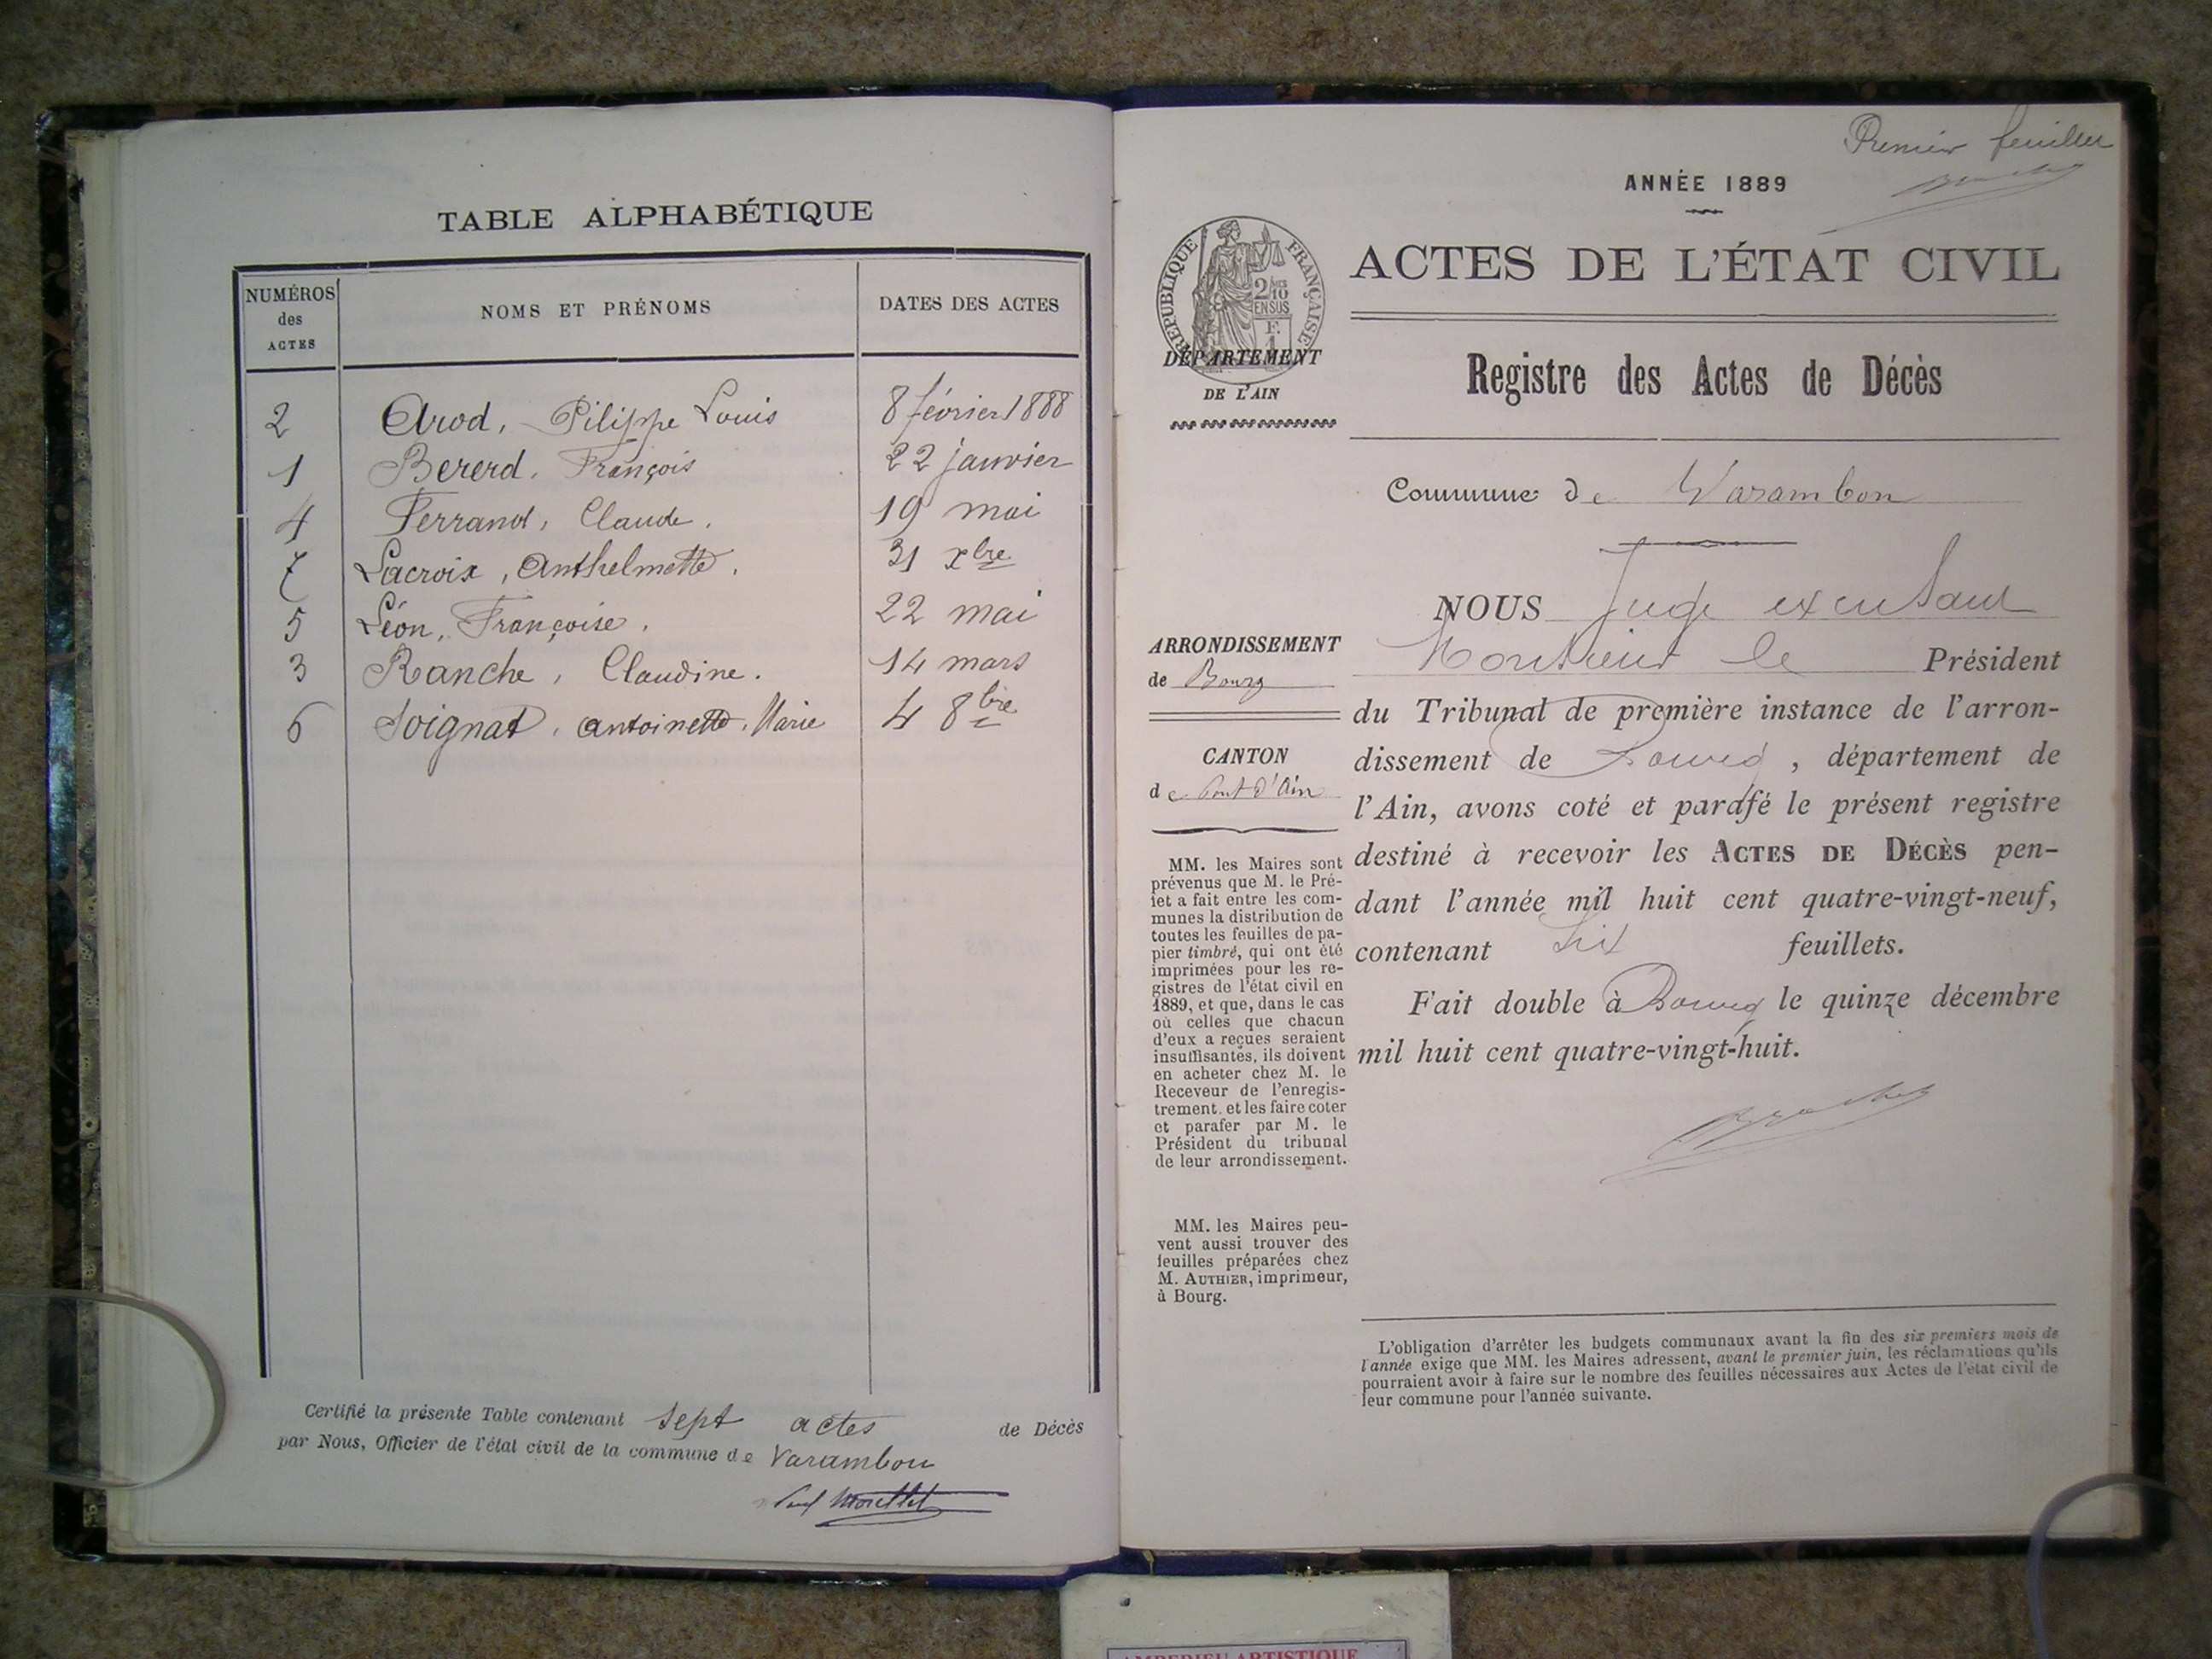 TABLE ALPHABÉTIQUE
NUMÉROS
des
ACTES
NOMS ET PRÉNOMS
DATES DES ACTES
2 Arod, Pilippe Louis 8 février 1888
1 Bererd, François 22 janvier
4 Ferrand, Claude. 19 mai
7 Lacroix, Anthelmette. 31 xbre
5 Léon, Françoise. 22 mai
3 Ranche, Claudine. 14 mars
6 Soignat, Antoinette, Marie 4 8bre
Certifié la présente Table contenant sept actes de Décès
par Nous, Officier de l'état civil de la commune de Varambon
Premier feuillet
ANNÉE 1889
RÉPUBLIQUE FRANÇAISE
2/10
EN SUS
F.
1
ACTES DE L'ÉTAT CIVIL
DÉPARTEMENT
DE L'AIN
Registre des Actes de Décès
Commune de Warambon
ARRONDISSEMENT
de Bourg
CANTON
de Pont d'Ain
MM. les Maires sont
prévenus que M. le Pré-
fet a fait entre les com-
munes la distribution de
toutes les feuilles de pa-
pier timbré, qui ont été
imprimées pour les re-
gistres de l'état civil en
1889, et que, dans le cas
où celles que chacun
d'eux a reçues seraient
insuffisantes, ils doivent
en acheter chez M. le
Receveur de l'enregis-
trement, et les faire coter
et parafer par M. le
Président du tribunal
de leur arrondissement.
MM. les Maires peu-
vent aussi trouver des
feuilles préparées chez
M. AUTHIER, imprimeur,
à Bourg.
NOUS Juge excusant
Monsieur le Président
du Tribunal de première instance de l'arron-
dissement de Bourg, département de
l'Ain, avons coté et parafé le présent registre
destiné à recevoir les ACTES DE DÉCÈS pen-
dant l'année mil huit cent quatre-vingt-neuf,
contenant Six feuillets.
Fait double à Bourg le quinze décembre
mil huit cent quatre-vingt-huit.
L'obligation d'arrêter les budgets communaux avant la fin des six premiers mois de
l'année exige que MM. les Maires adressent, avant le premier juin, les réclamations qu'ils
pourraient avoir à faire sur le nombre des feuilles nécessaires aux Actes de l'état civil de
leur commune pour l'année suivante.
AMBERIEU ARTISTIQUE